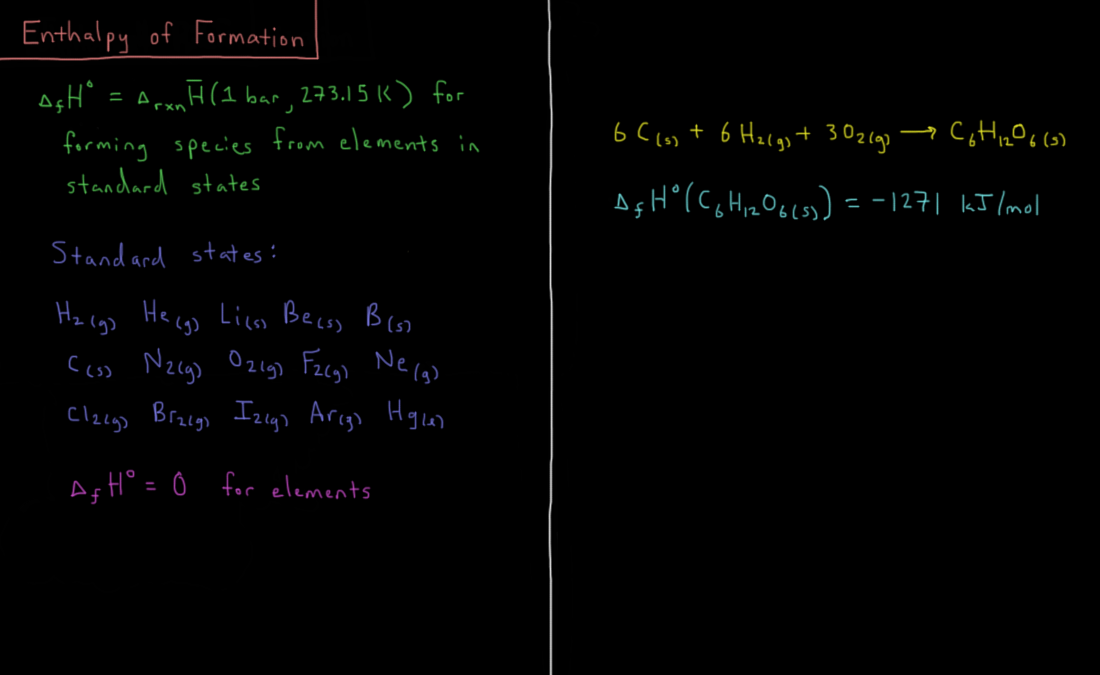 Enthalpy of Formation
Δ_f H° = Δ_rxn H̅ (1 bar, 273.15 K) for
forming species from elements in
standard states
Standard states:
H₂(g) He(g) Li(s) Be(s) B(s)
C(s) N₂(g) O₂(g) F₂(g) Ne(g)
Cl₂(g) Br₂(g) I₂(g) Ar(g) Hg(ℓ)
Δ_f H° = 0 for elements
6 C(s) + 6 H₂(g) + 3 O₂(g) → C₆H₁₂O₆(s)
Δ_f H°(C₆H₁₂O₆(s)) = -1271 kJ/mol